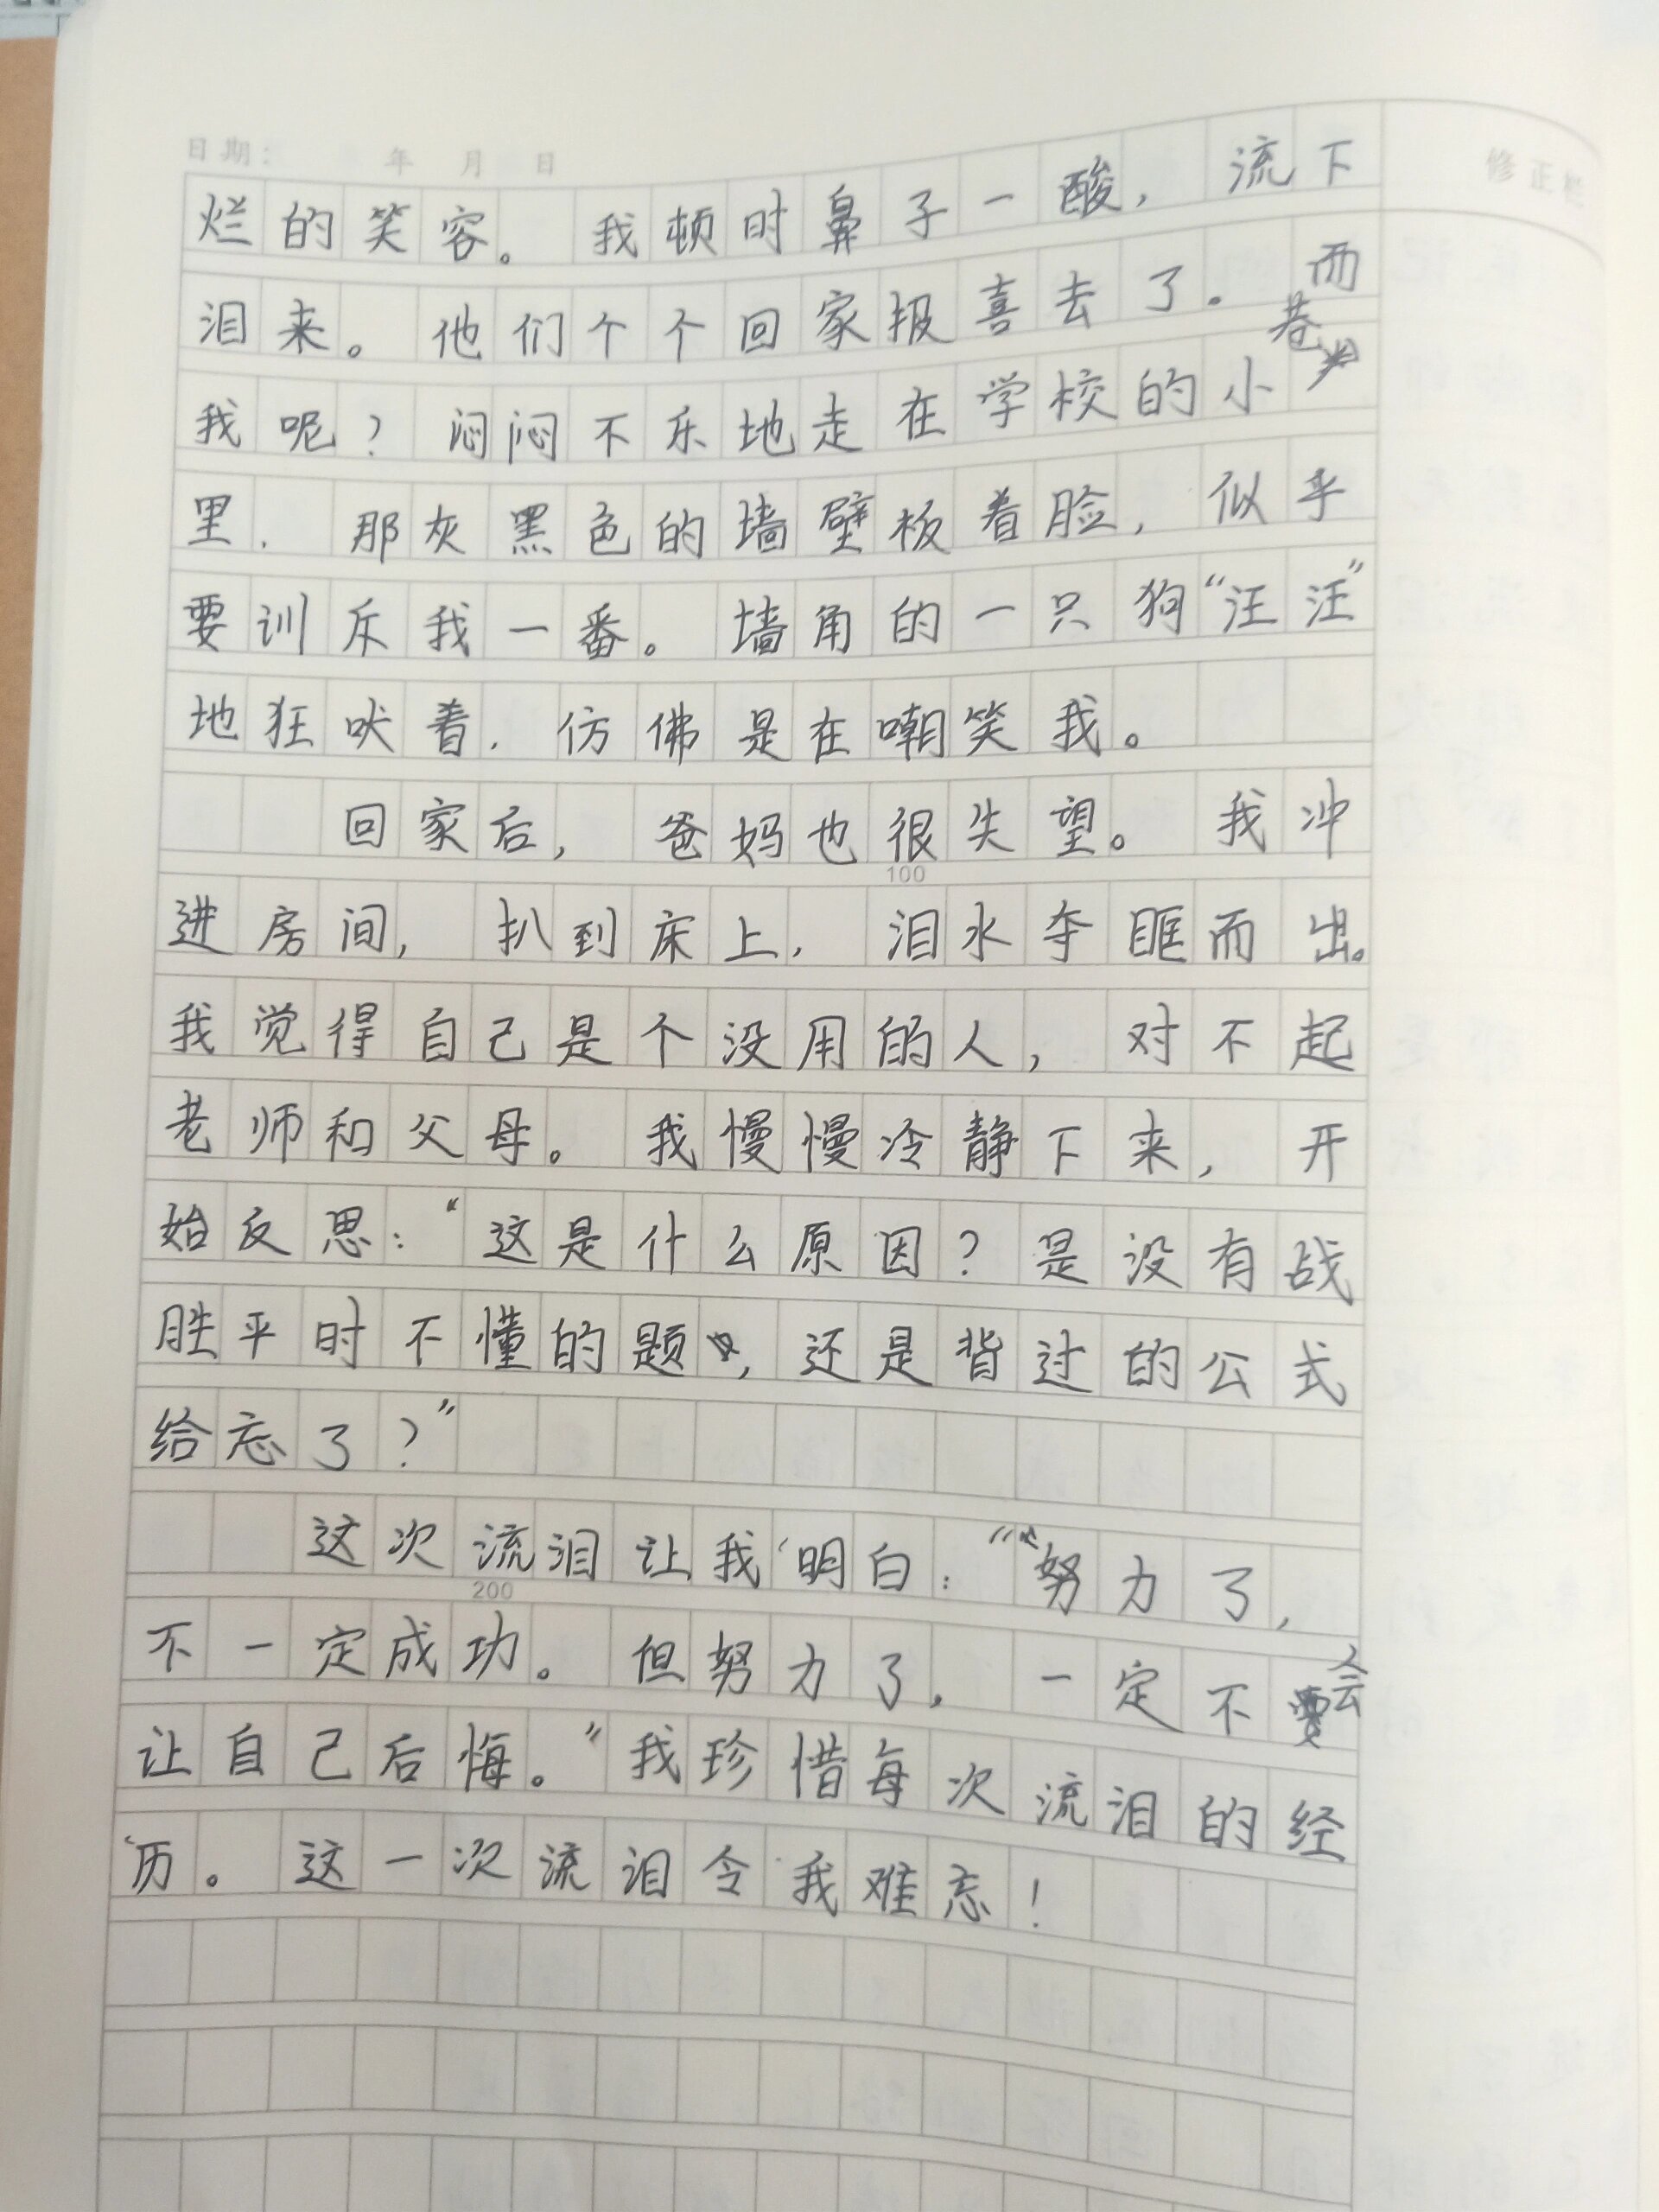 日期： 年 月 日
修正栏
烂的笑容。我顿时鼻子一酸，流下
泪来。他们个个回家报喜去了。而
我呢？闷闷不乐地走在学校的小巷
里．那灰黑色的墙壁板着脸，似乎
要训斥我一番。墙角的一只狗“汪汪”
地狂吠着．仿佛是在嘲笑我。
回家后，爸妈也很失望。我冲
100
进房间，扒到床上，泪水夺眶而出。
我觉得自己是个没用的人，对不起
老师和父母。我慢慢冷静下来，开
始反思：“这是什么原因？是没有战
胜平时不懂的题，还是背过的公式
给忘了？”
这次流泪让我明白：“努力了，
200
不一定成功。但努力了，一定不会
让自己后悔。”我珍惜每次流泪的经
历。这一次流泪令我难忘！